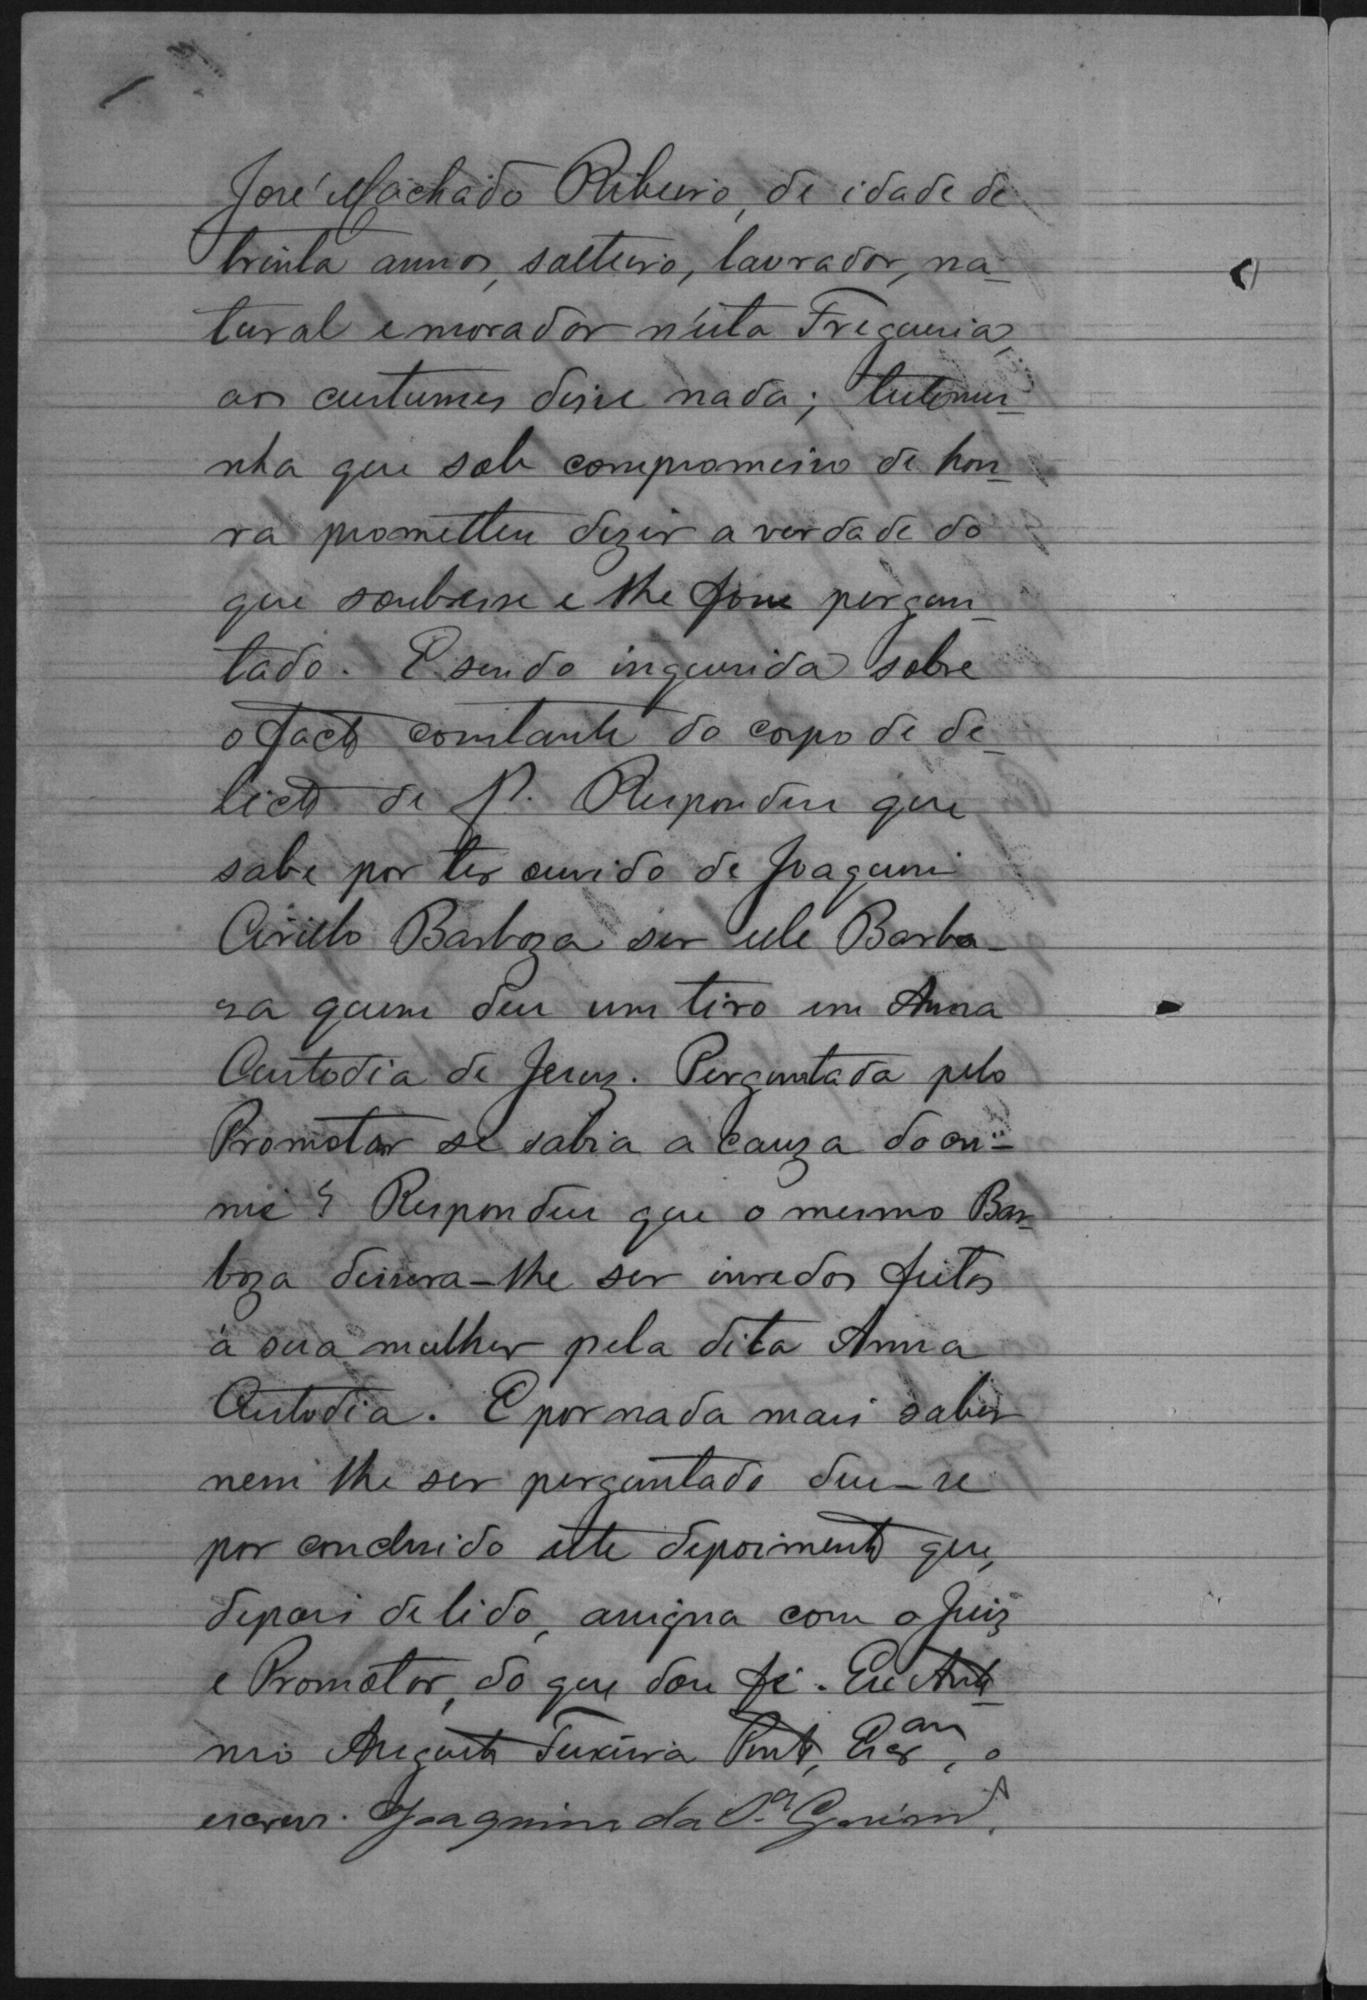 José Machado Ribeiro, de idade de
trinta annos, solteiro, lavrador, na-
tural e morador n'esta Freguesia,
aos custumes disse nada; testemu-
nha que sob compromisso de hon-
ra prometteu dizer a verdade do
que soubesse e lhe fosse pergun-
tado. E sendo inquerida sobre
o facto constante do corpo de de-
licto de f. Respondeu que
sabe por ter ouvido de Joaquim
Cirillo Barboza ser elle Barbo-
za quem deu um tiro em Anna
Custodia de Jesus. Perguntada pelo
Promotor se sabia a cauza do cri-
me? Respondeu que o mesmo Bar-
boza dissera-lhe ser inredos feitos
à sua mulher pela dita Anna
Custodia. E por nada mais saber
nem lhe ser perguntado deu-se
por concluido este depoimento que,
depois de lido, assigna com o Juiz
e Promotor, do que dou fé. Eu Anto-
nio Augusto Teixeira Pinto, Escram, o
escrevi. Joaquim da S.ª